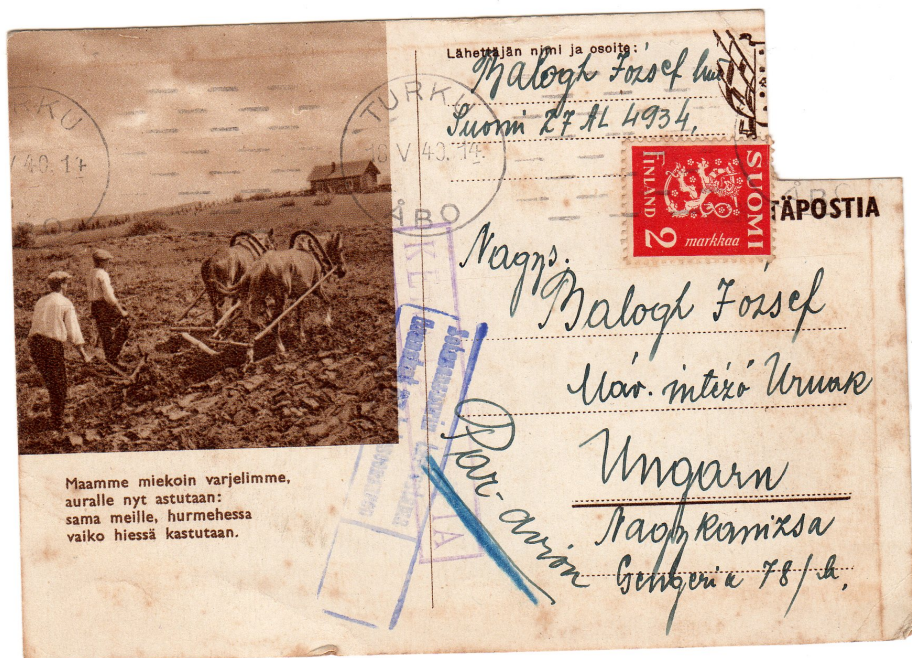 Lähettäjän nimi ja osoite:
Balogh József
Suomi 27 AL 4934.
TURKU
18 V 40. 14
ÅBO
SUOMI
FINLAND
2 markkaa
TÄPOSTIA
Nagys.
Balogh József
Máv. intéző Urnak
Ungarn
Nagykanizsa
78/
Par-avion
Maamme miekoin varjelimme,
auralle nyt astutaan:
sama meille, hurmehessa
vaiko hiessä kastutaan.